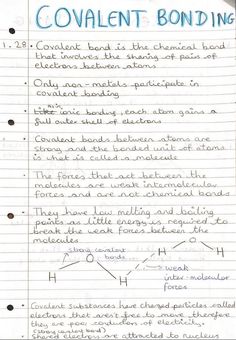 COVALENT BONDING
1.28 • Covalent bond is the chemical bond
that involves the sharing of pairs of
electrons between atoms
• Only non-metals participate in
covalent bonding
• Like ionic bonding, each atom gains a
full outer shell of electrons
• Covalent bonds between atoms are
strong and the bonded unit of atoms
is what is called a molecule
• The forces that act between the
molecules are weak intermolecular
forces and are not chemical bonds
• They have low melting and boiling
points as little energy is required to
break the weak forces between the
molecules
strong covalent
bonds
O
H
H
O
H
H
weak
inter-molecular
forces
• Covalent substances have charged particles called
electrons that aren't free to move, therefore
they are poor conductors of electricity.
(strong covalent bond)
• Shared electrons are attracted to nucleus